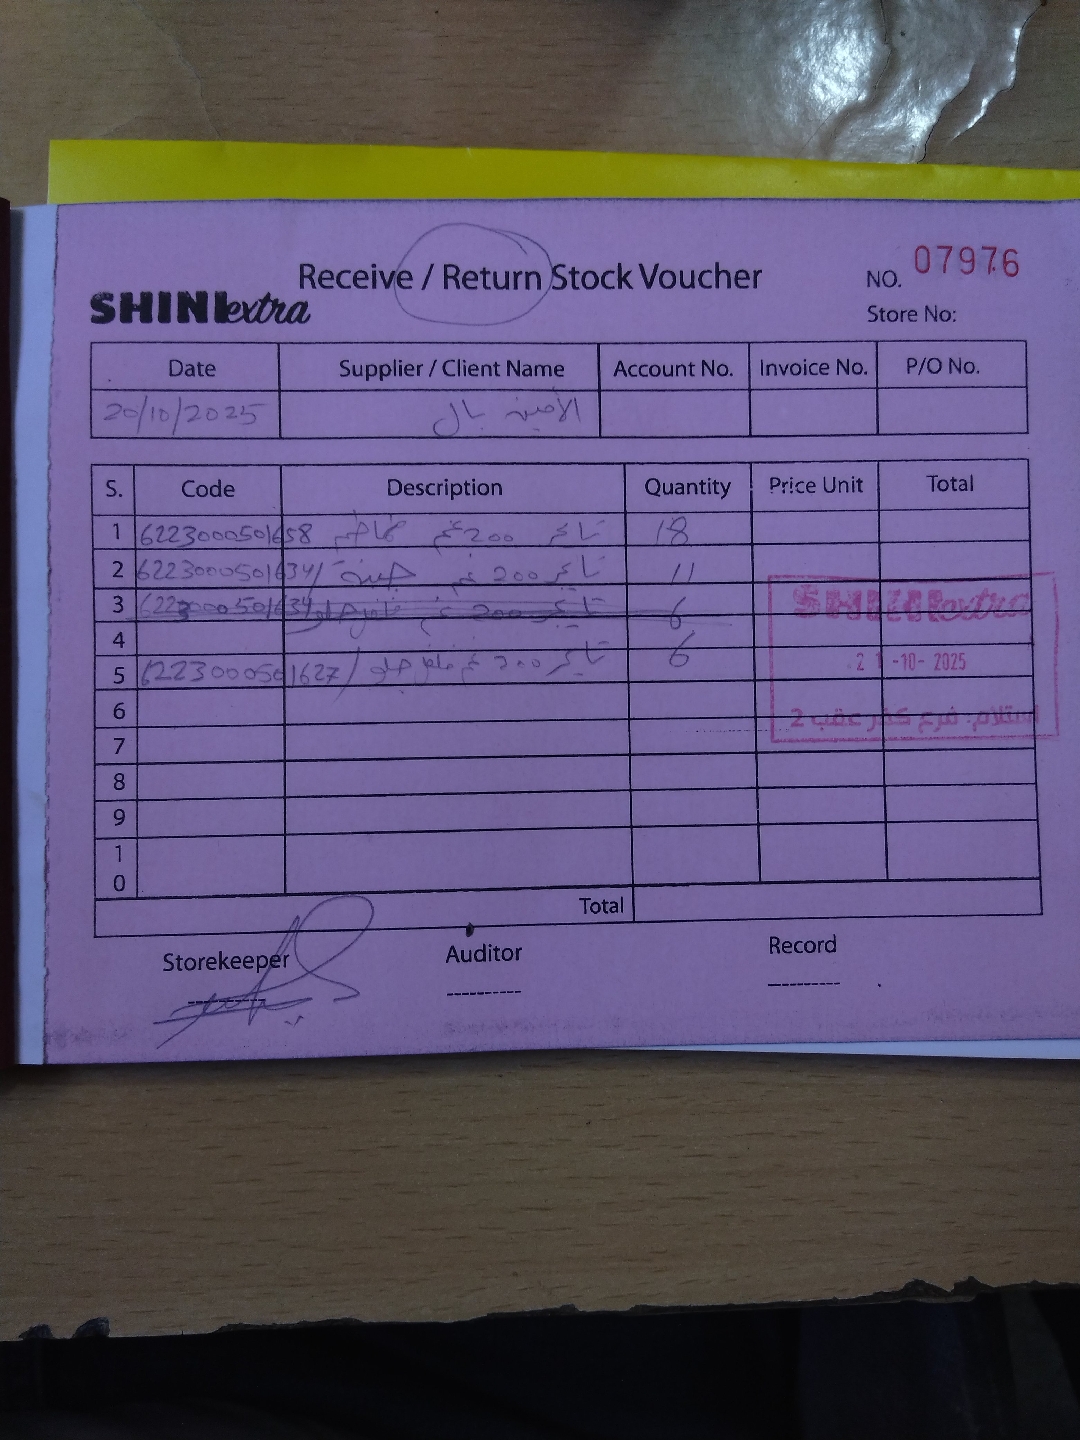 Receive / Return Stock Voucher
NO. 07976
SHINI extra
Store No:
Date Supplier / Client Name Account No. Invoice No. P/O No.
20/10/2025 الأمين بال
S. Code Description Quantity Price Unit Total
1 6223000501658 تايجر 200 غم طماطم 18
2 6223000501634/ تايجر 200 غم جبنة 11
3 6223000501634 تايجر 200 غم حلو 6
4
5 6223000501627/ تايجر 200 غم حلو 6
SHINI extra
21-10-2025
استلام. فرع كفر عقب 2
6
7
8
9
10
Total
Storekeeper Auditor Record